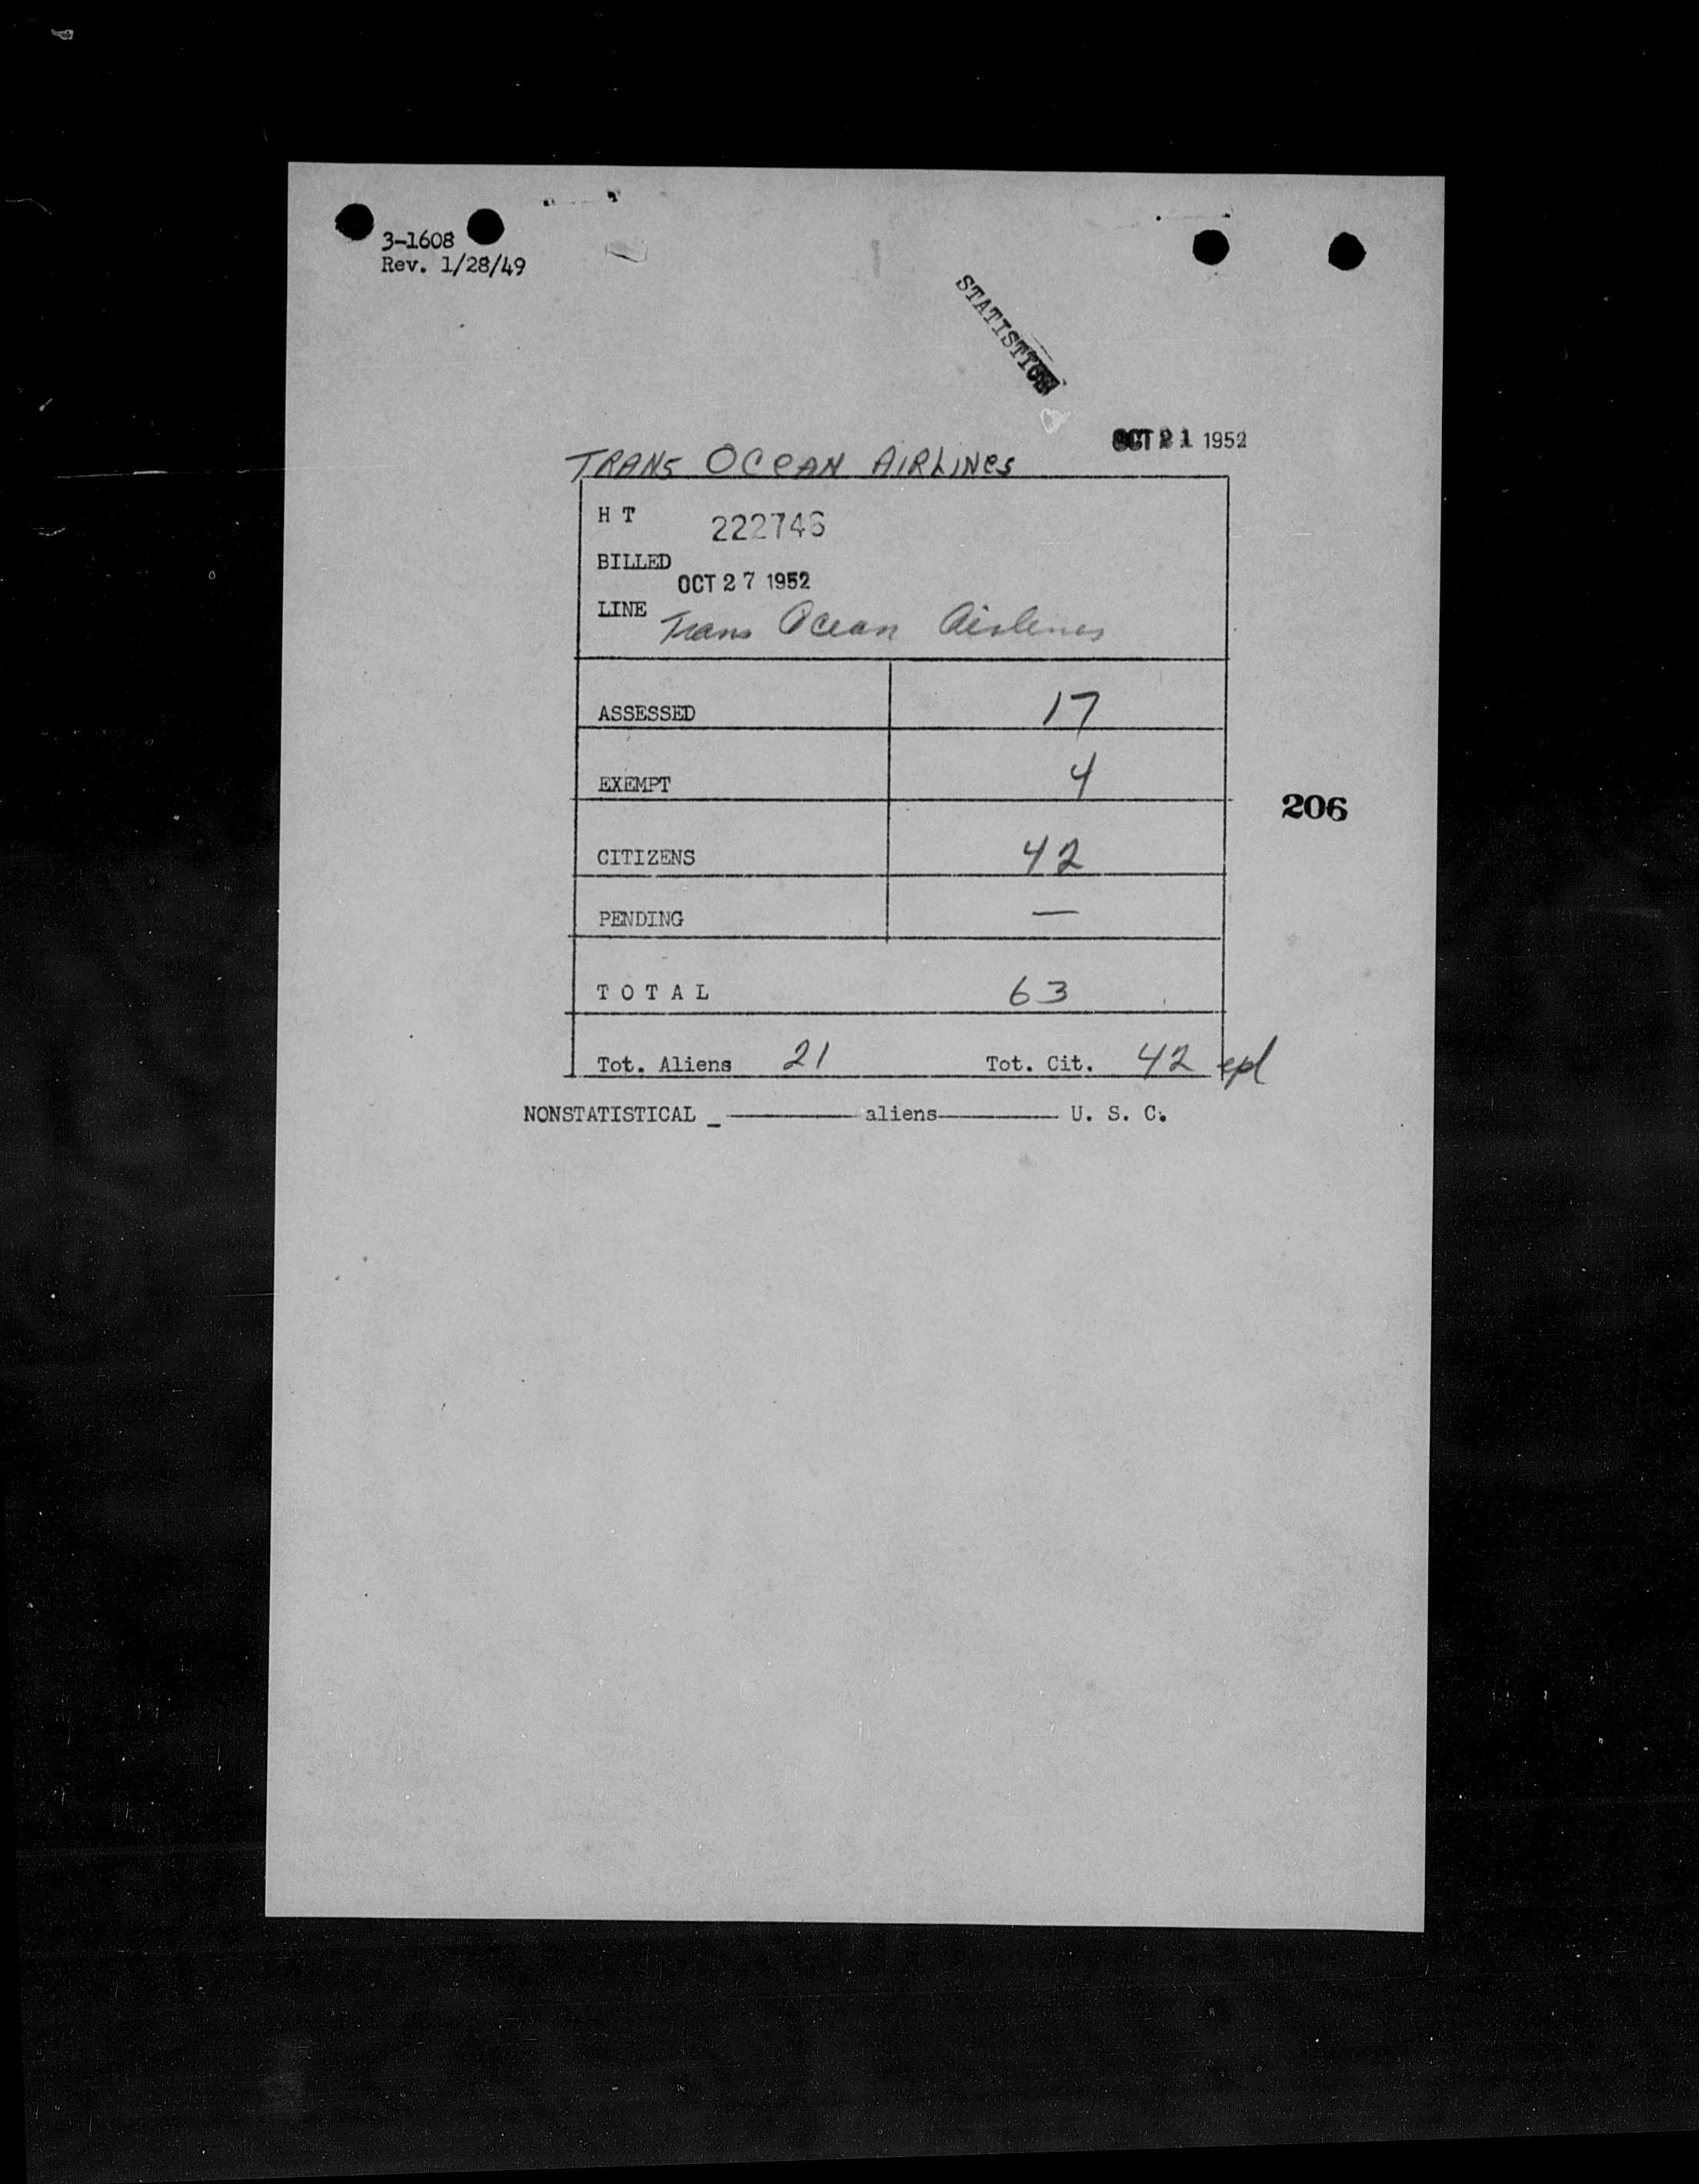 3-1608
Rev. 1/28/49
STATISTICS
OCT 21 1952
TRANS OCEAN AIRLINES
H T 222746
BILLED
OCT 27 1952
LINE Trans Ocean Airlines
ASSESSED 17
EXEMPT 4
206
CITIZENS 42
PENDING —
TOTAL 63
Tot. Aliens 21 Tot. Cit. 42 epl
NONSTATISTICAL _ ———— aliens ———— U. S. C.